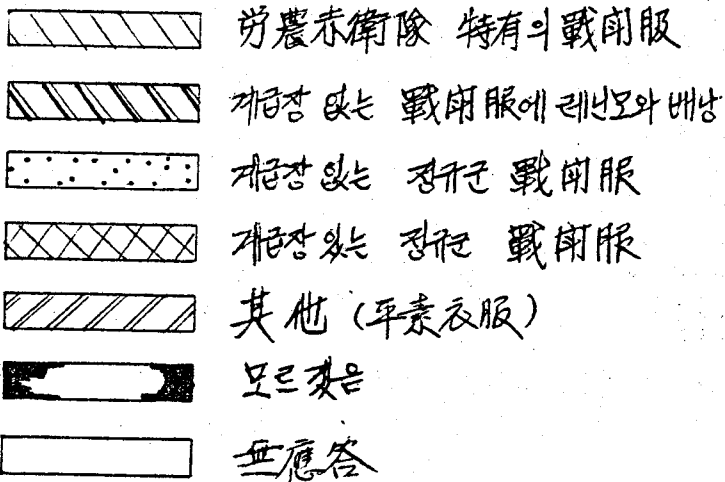 労農赤衛隊 特有의 戰鬪服
계급장 없는 戰鬪服에 레닌모와 배낭
계급장 없는 정규군 戰鬪服
계급장 있는 정규군 戰鬪服
其他 (平素衣服)
모르겠음
無應答